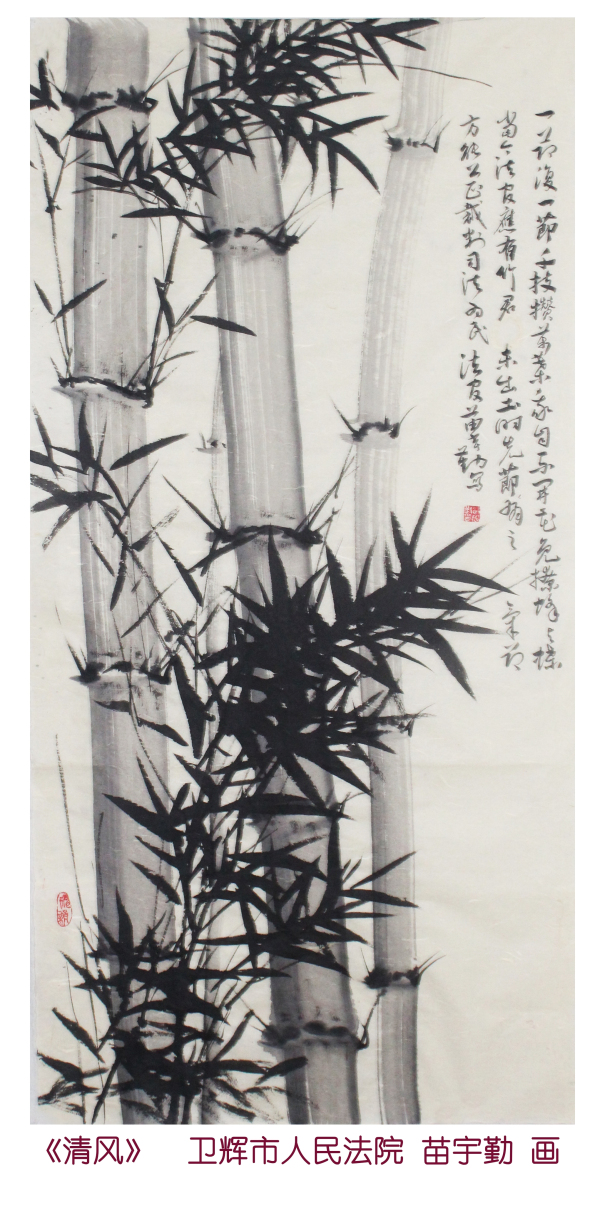 一节復一節千枝攢萬葉我自不開花免撩蜂与蝶
當今法官應有竹君 未出土时先節之 氣节
方能公正裁判司法为民 法官苗宇勤写
《清风》 卫辉市人民法院 苗宇勤 画